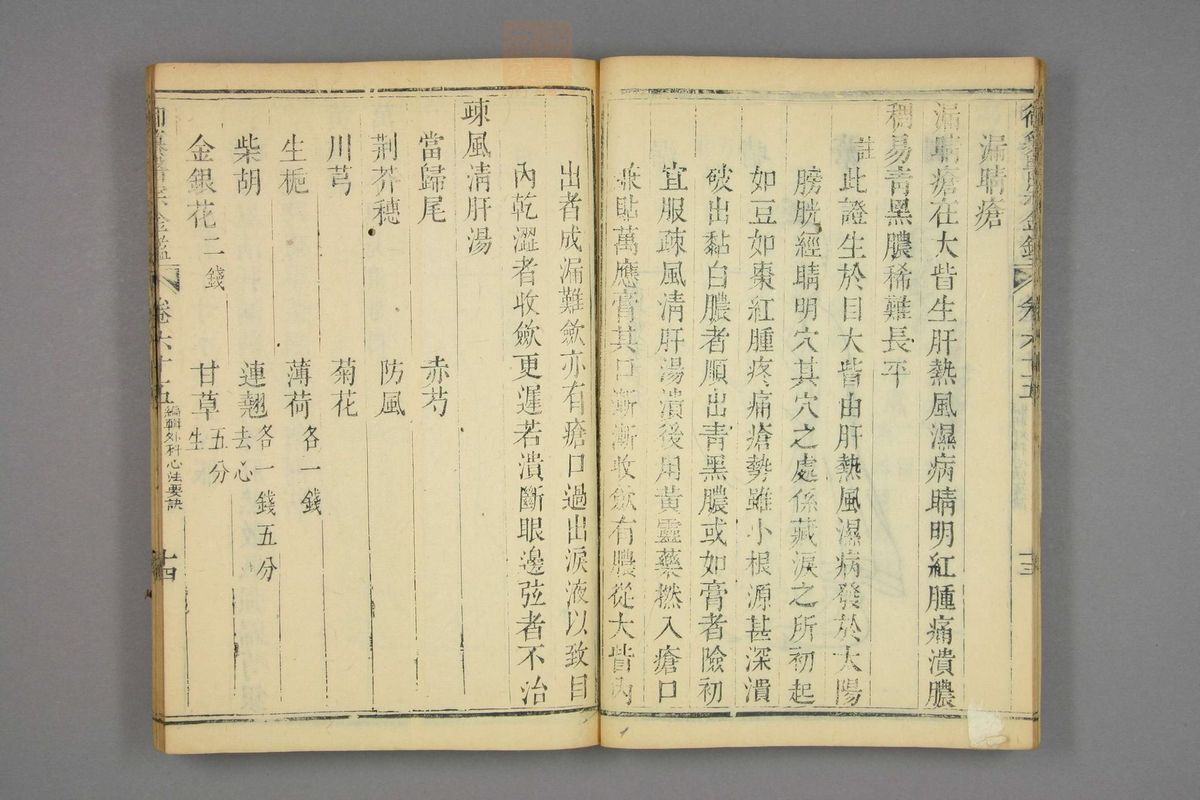 漏睛瘡
漏睛瘡在大眥生肝熱風濕病睛明紅腫痛潰膿
稠易青黑膿稀難長平
註此證生於目大眥由肝熱風濕病發於太陽
膀胱經睛明穴其穴之處係藏淚之所初起
如豆如棗紅腫疼痛瘡勢雖小根源甚深潰
破出黏白膿者順出青黑膿或如膏者險初
宜服疎風清肝湯潰後用黃靈藥撚入瘡口
兼貼萬應膏其口漸漸收斂有膿從大眥內
出者成漏難斂亦有瘡口過出淚液以致目
內乾澀者收斂更遲若潰斷眼邊弦者不治
疎風清肝湯
當歸尾 赤芍
荆芥穗 防風
川芎 菊花
生梔 薄荷各一錢
柴胡 連翹去心各一錢五分
金銀花二錢 甘草生五分
御纂醫宗金鑑 卷六十五 編輯外科心法要訣 十四